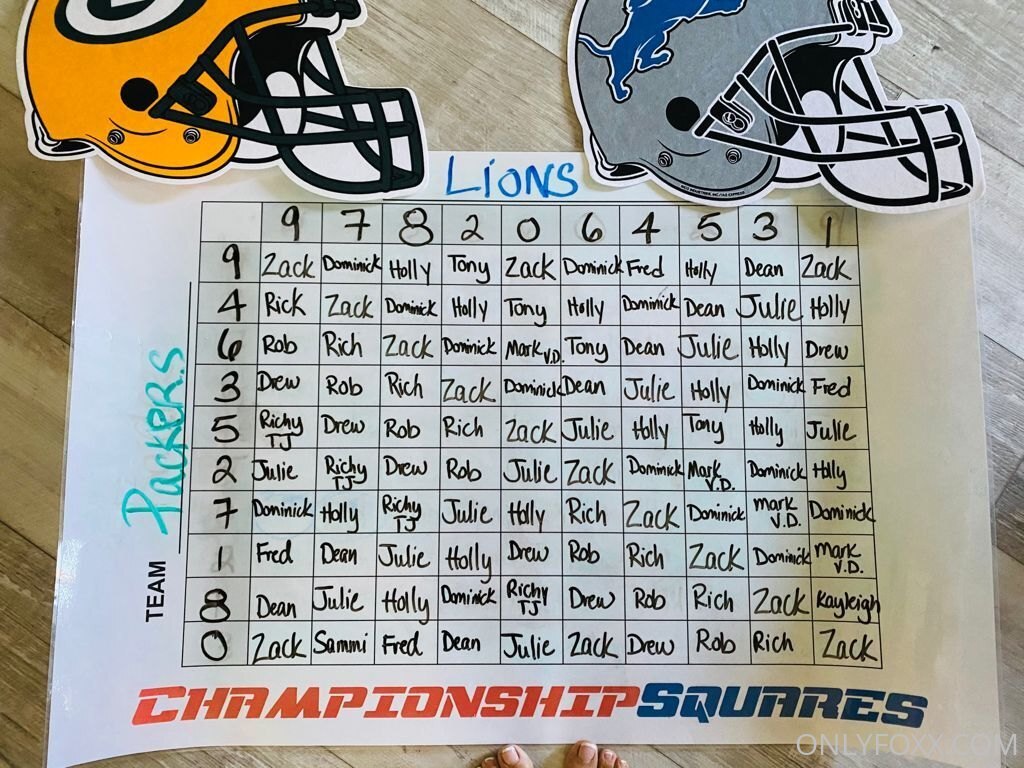 G
LIONS
9 7 8 2 0 6 4 5 3 1
9 Zack Dominick Holly Tony Zack Dominick Fred Holly Dean Zack
4 Rick Zack Dominick Holly Tony Holly Dominick Dean Julie Holly
6 Rob Rich Zack Dominick Mark V.D. Tony Dean Julie Holly Drew
3 Drew Rob Rich Zack Dominick Dean Julie Holly Dominick Fred
5 Richy TJ Drew Rob Rich Zack Julie Holly Tony Holly Julie
2 Julie Richy TJ Drew Rob Julie Zack Dominick Mark V.D. Dominick Holly
7 Dominick Holly Richy TJ Julie Holly Rich Zack Dominick Mark V.D. Dominick
1 Fred Dean Julie Holly Drew Rob Rich Zack Dominick Mark V.D.
8 Dean Julie Holly Dominick Richy TJ Drew Rob Rich Zack Kayleigh
0 Zack Sammi Fred Dean Julie Zack Drew Rob Rich Zack
TEAM Packers
CHAMPIONSHIPSQUARES
ONLYFOXX.COM